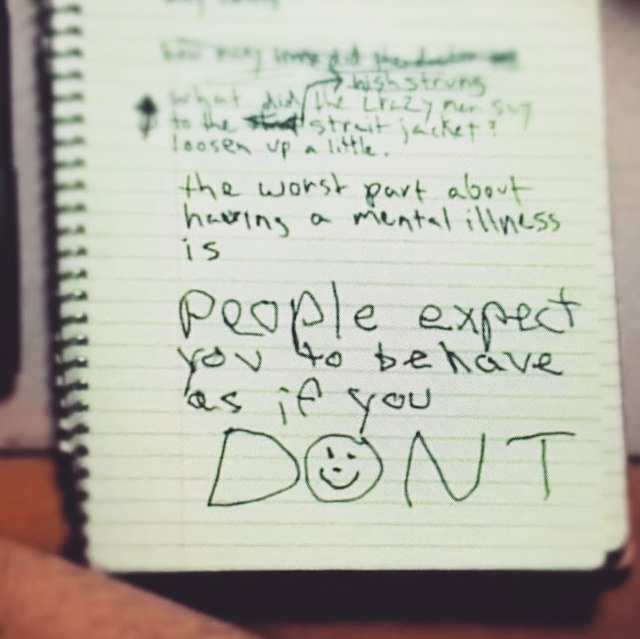 how many
highstrung
What did the crazy man say
to the strait jacket?
loosen up a little.
the worst part about
having a mental illness
is
people expect
you to behave
as if you
DONT